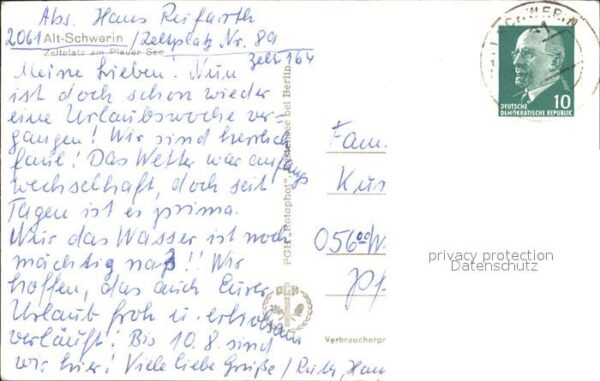 Abs. Hans Reifarth
2061 Alt-Schwerin / Zeltplatz Nr. 89
Zeltplatz am Plauer See
Zelt 164
Meine Lieben! Nun
ist doch schon wieder
eine Urlaubswoche ver-
gangen! Wir sind herrlich
faul! Das Wetter war anfangs
wechselhaft, doch seit
Tagen ist es prima.
Nur das Wasser ist noch
mächtig naß!! Wir
hoffen, das auch Eurer
Urlaub froh u. erholsam
verläuft! Bis 10.8. sind
wir hier! Viele liebe Grüße / Ruth, Hans
PGH „Rotophot", bei Berlin
Verbraucherpr
SCHWERIN
10
DEUTSCHE
DEMOKRATISCHE REPUBLIK
Fam.
056
privacy protection
Datenschutz